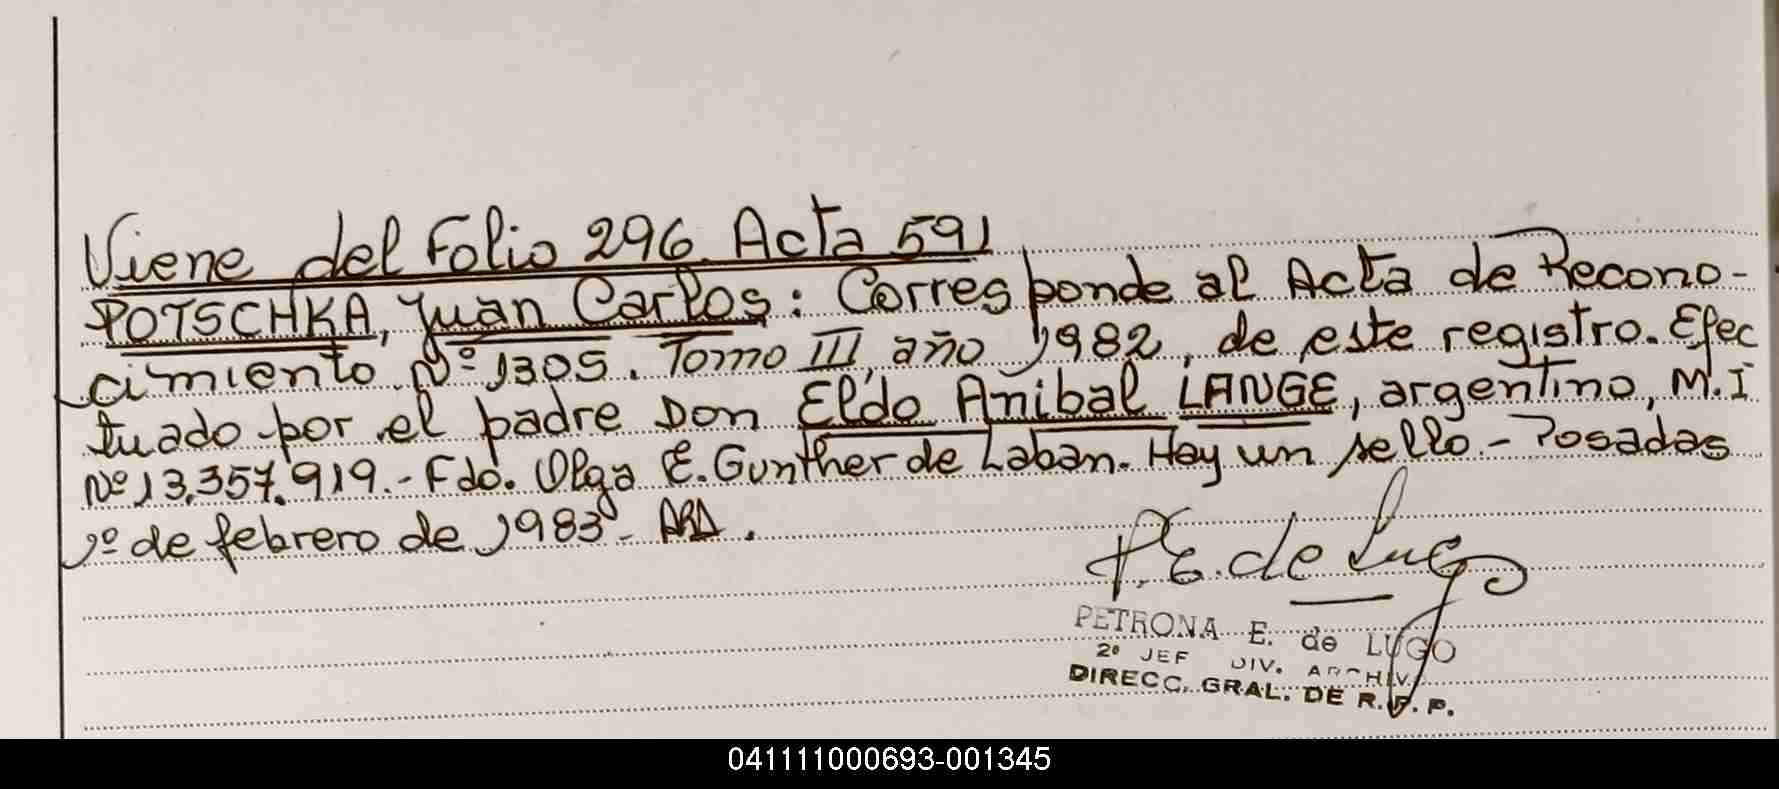 Viene del Folio 296. Acta 591
POTSCHKA, Juan Carlos: Corresponde al Acta de Recono-
cimiento Nº 1305. Tomo III, año 1982, de este registro. Efec
tuado por el padre Don Eldo Anibal LANGE, argentino, M.I
Nº 13.357.919.- Fdo. Olga E. Gunther de Laban. Hay un sello.- Posadas
1º de febrero de 1983.-
P.E. de Lugo
PETRONA E. de LUGO
2º JEF DIV. ARCHIV.
DIRECC. GRAL. DE R.P.P.
041111000693-001345